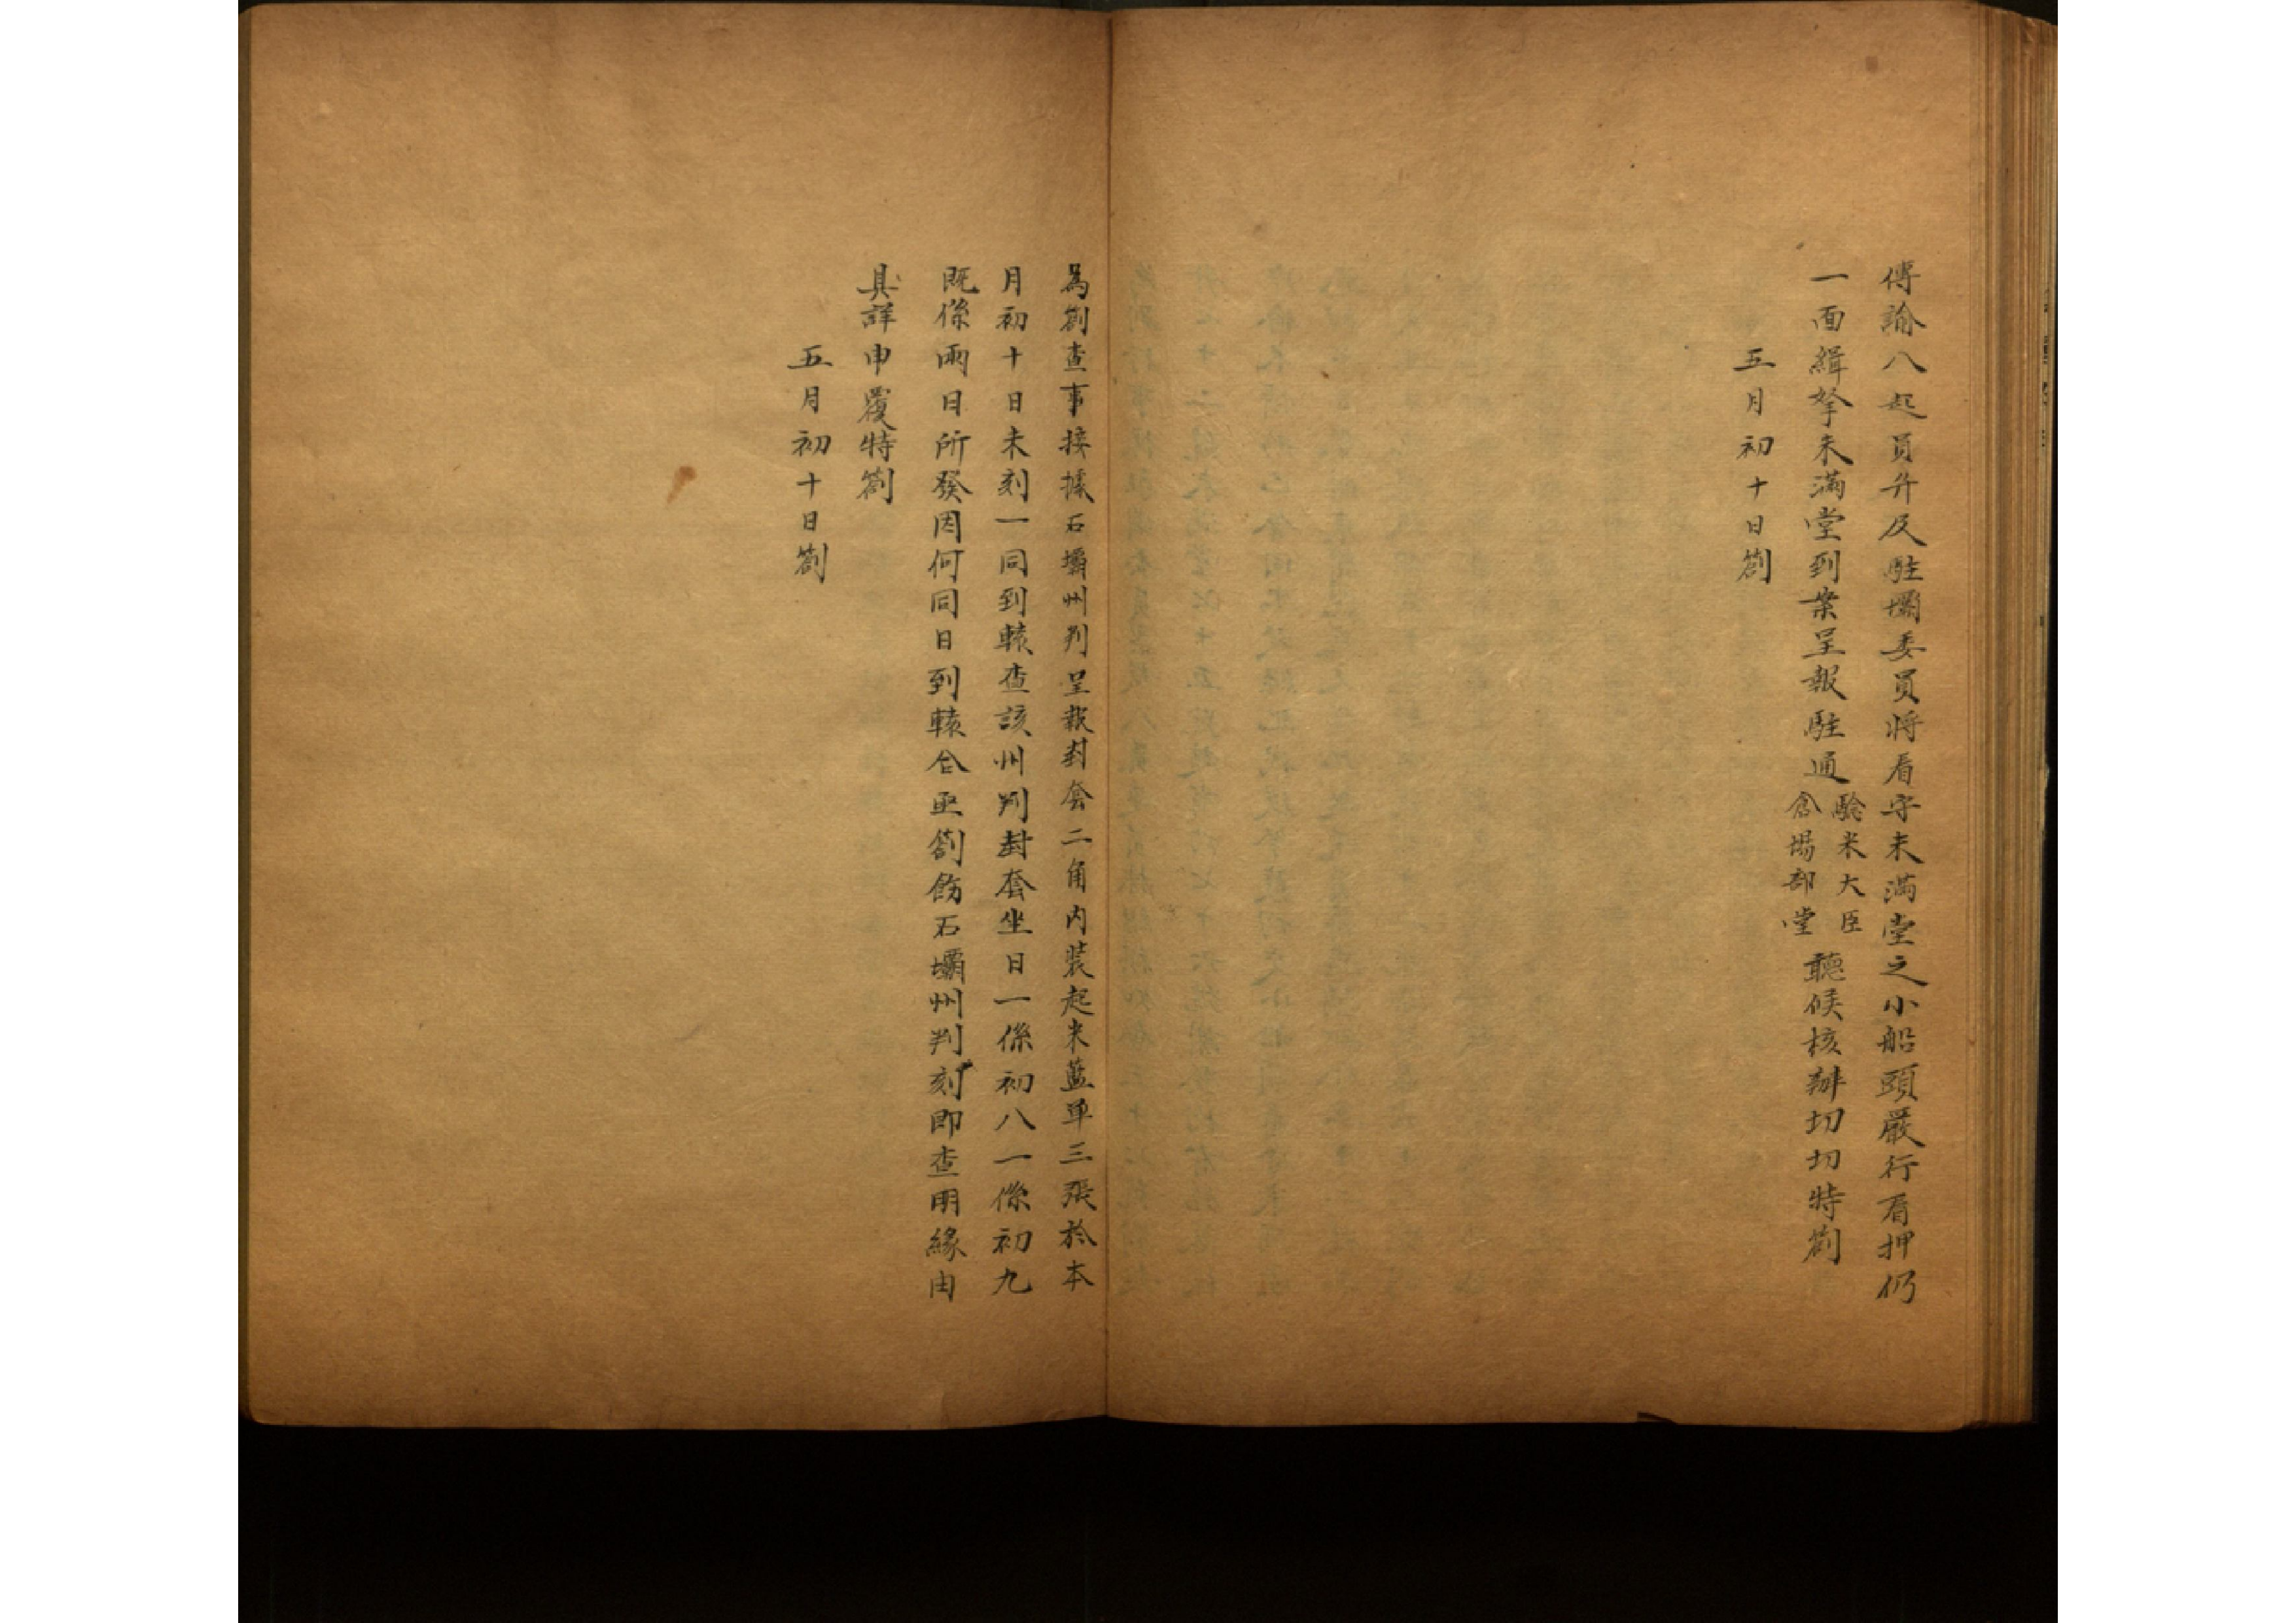 傳諭八起員弁及駐壩委員將看守未滿堂之小船頭嚴行看押仍
一面緝拏未滿堂到案呈報駐通驗米大臣倉場部堂聽候核辦切切特劄
五月初十日劄
為劄查事接據石壩州判呈報封套二角內裝起米藍單三張於本
月初十日未刻一同到轅查該州判封套坐日一係初八一係初九
既係兩日所發因何同日到轅仝亟劄飭石壩州判刻即查明緣由
具詳申覆特劄
五月初十日劄